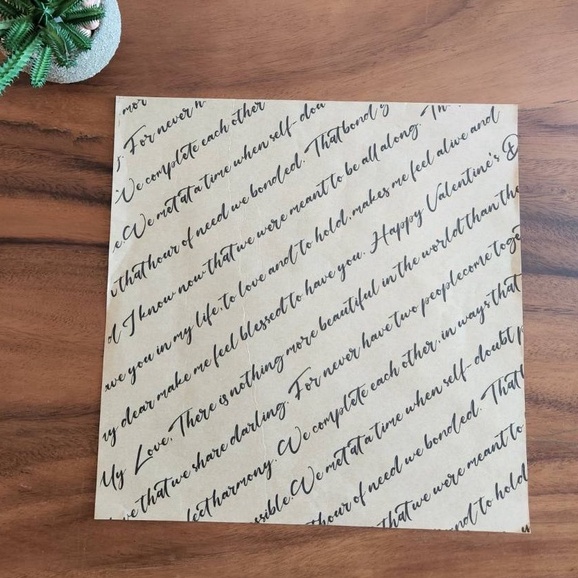 For never
We complete each other
We met at a time when self-dou
that hour of need we bonded. That bond
I know now that we were meant to be all along. Th
ave you in my life, to love and to hold, makes me feel alive and
y dear make me feel blessed to have you. Happy Valentine's D
My Love, There is nothing more beautiful in the world than the
ve that we share darling. For never have two peoplecome toge
fect harmony. We complete each other, in ways that
ssible. We met at a time when self-doubt p
hour of need we bonded. That
that we were meant to
and to hold